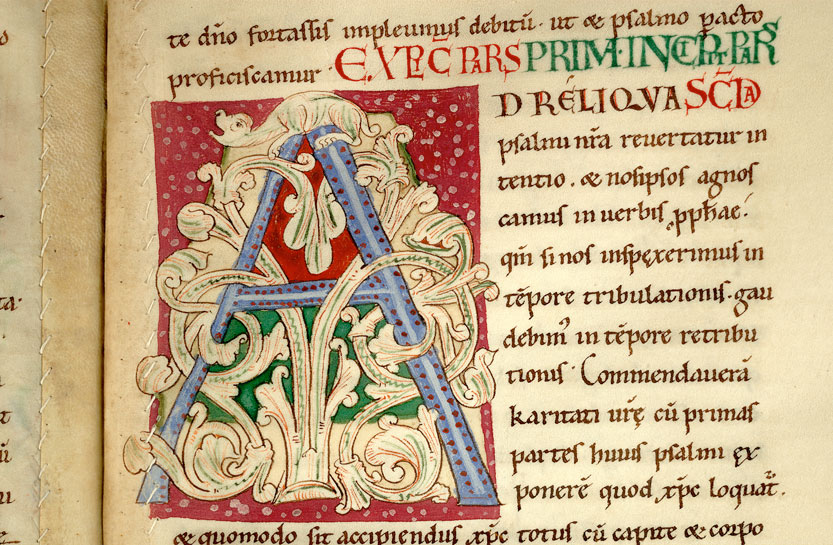 te dño fortassis impleumus debitũ. ut & psalmo pacto
proficiscamur. EXPLIC̄ PARS PRIM· INCIPIT PARS
AD RELIQVA SC̄DA
psalmi nr̄a reuertatur in
tentio. & nosipsos agnos
camus in uerbis ꝓphae.
qm̄ si nos inspęxerimus in
tēpore tribulationis. gau
debim᷒ in tēpore retribu
tionis. Commendauerā
karitati ur̄ę cū primas
partes huius psalmi ęx
ponerē quod xp̄c loquat᷑.
& quomodo sit accipiendus xp̄c totus cū capite & corpo